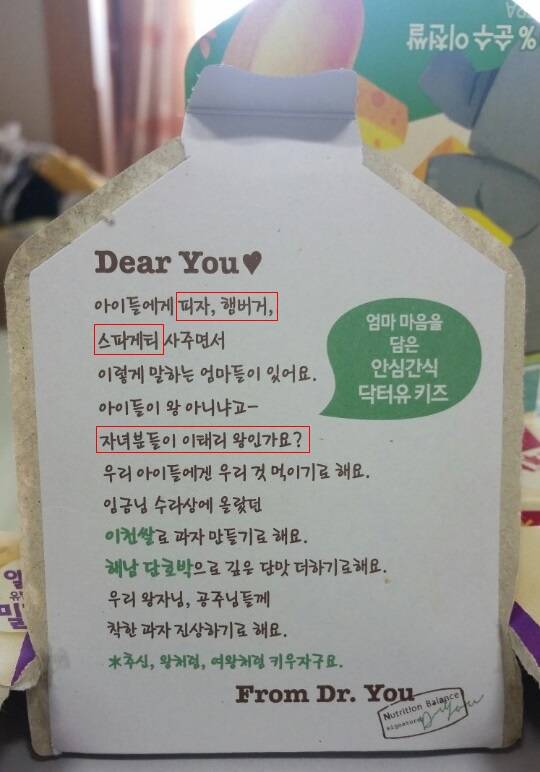 % 순수 이천쌀
Dear You♥
아이들에게 피자, 햄버거,
스파게티 사주면서
이렇게 말하는 엄마들이 있어요.
아이들이 왕 아니냐고-
자녀분들이 이태리 왕인가요?
우리 아이들에겐 우리 것 먹이기로 해요.
임금님 수라상에 올랐던
이천쌀로 과자 만들기로 해요.
해남 단호박으로 깊은 단맛 더하기로해요.
우리 왕자님, 공주님들께
착한 과자 진상하기로 해요.
*추신, 왕처럼, 여왕처럼 키우자구요.
From Dr. You
엄마 마음을
담은
안심간식
닥터유 키즈
Nutrition Balance
signature Dr.You